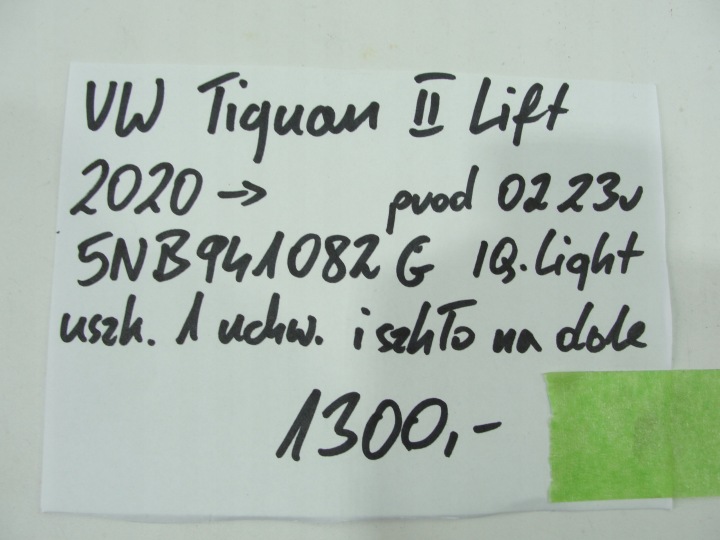 VW Tiguan II Lift
2020 → prod 02 23r
5NB941082G IQ.Light
uszk. 1 uchw. i szkło na dole
1300,-